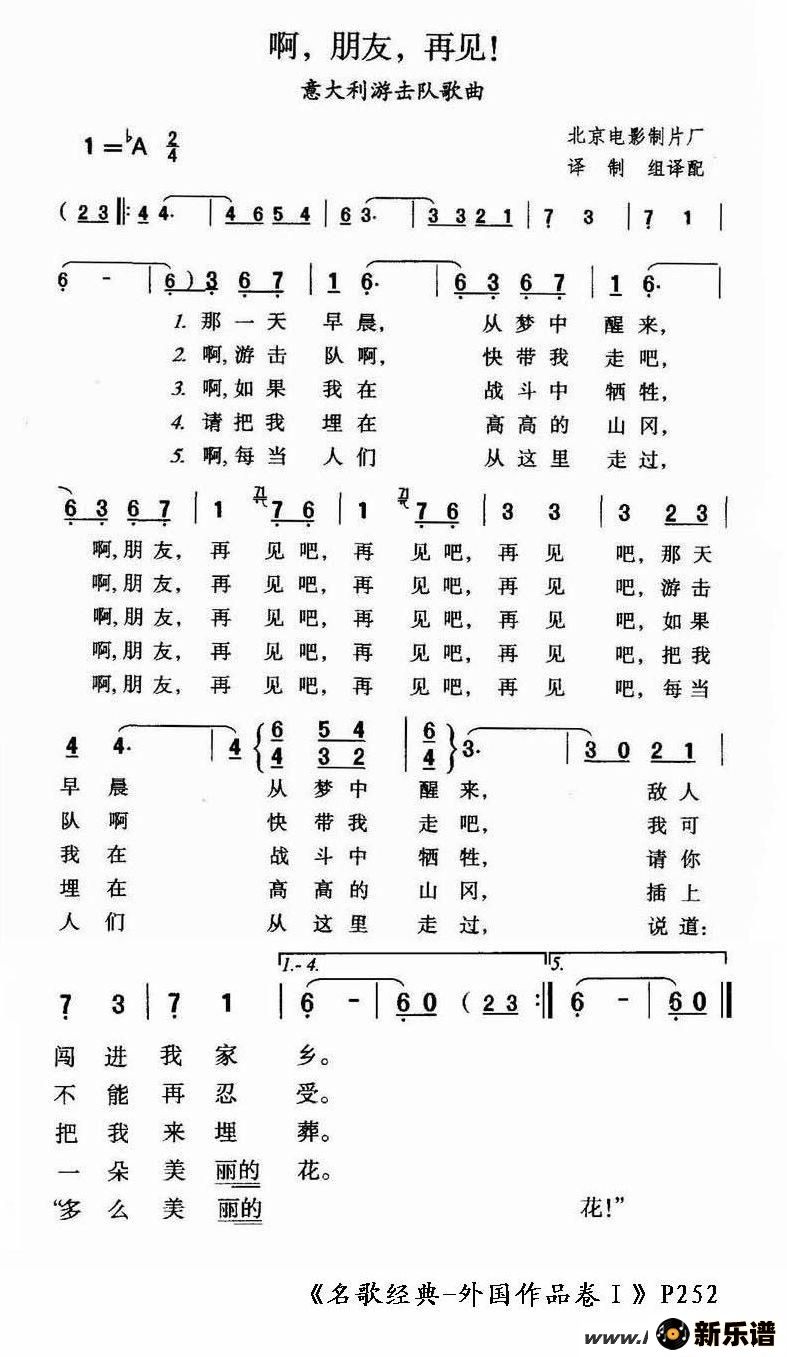 啊，朋友，再见！
意大利游击队歌曲
1=♭A 2/4
北京电影制片厂
译 制 组译配
( 2 3 ‖: 4 4. | 4 6 5 4 | 6 3. | 3 3 2 1 | 7 3 | 7 1 |
6 - | 6 ) 3 6 7 | 1 6. | 6 3 6 7 | 1 6. |
1. 那一天 早晨， 从梦中 醒来，
2. 啊，游击 队啊， 快带我 走吧，
3. 啊，如果 我在 战斗中 牺牲，
4. 请把我 埋在 高高的 山冈，
5. 啊，每当 人们 从这里 走过，
6 3 6 7 | 1 7 6 | 1 7 6 | 3 3 | 3 2 3 |
啊，朋友， 再 见吧，再 见吧，再见 吧，那天
啊，朋友， 再 见吧，再 见吧，再见 吧，游击
啊，朋友， 再 见吧，再 见吧，再见 吧，如果
啊，朋友， 再 见吧，再 见吧，再见 吧，把我
啊，朋友， 再 见吧，再 见吧，再见 吧，每当
4 4. | 4 6 5 4 | 6 3. | 3 0 2 1 |
4 3 2 4
早晨 从梦中 醒来， 敌人
队啊 快带我 走吧， 我可
我在 战斗中 牺牲， 请你
埋在 高高的 山冈， 插上
人们 从这里 走过， 说道：
1.-4. 5.
7 3 | 7 1 | 6 - | 6 0 ( 2 3 :‖ 6 - | 6 0 ‖
闯进我家 乡。
不能再忍 受。
把我来埋 葬。
一朵美丽的 花。
“多么美丽的 花！”
《名歌经典-外国作品卷Ⅰ》P252
www.
新乐谱